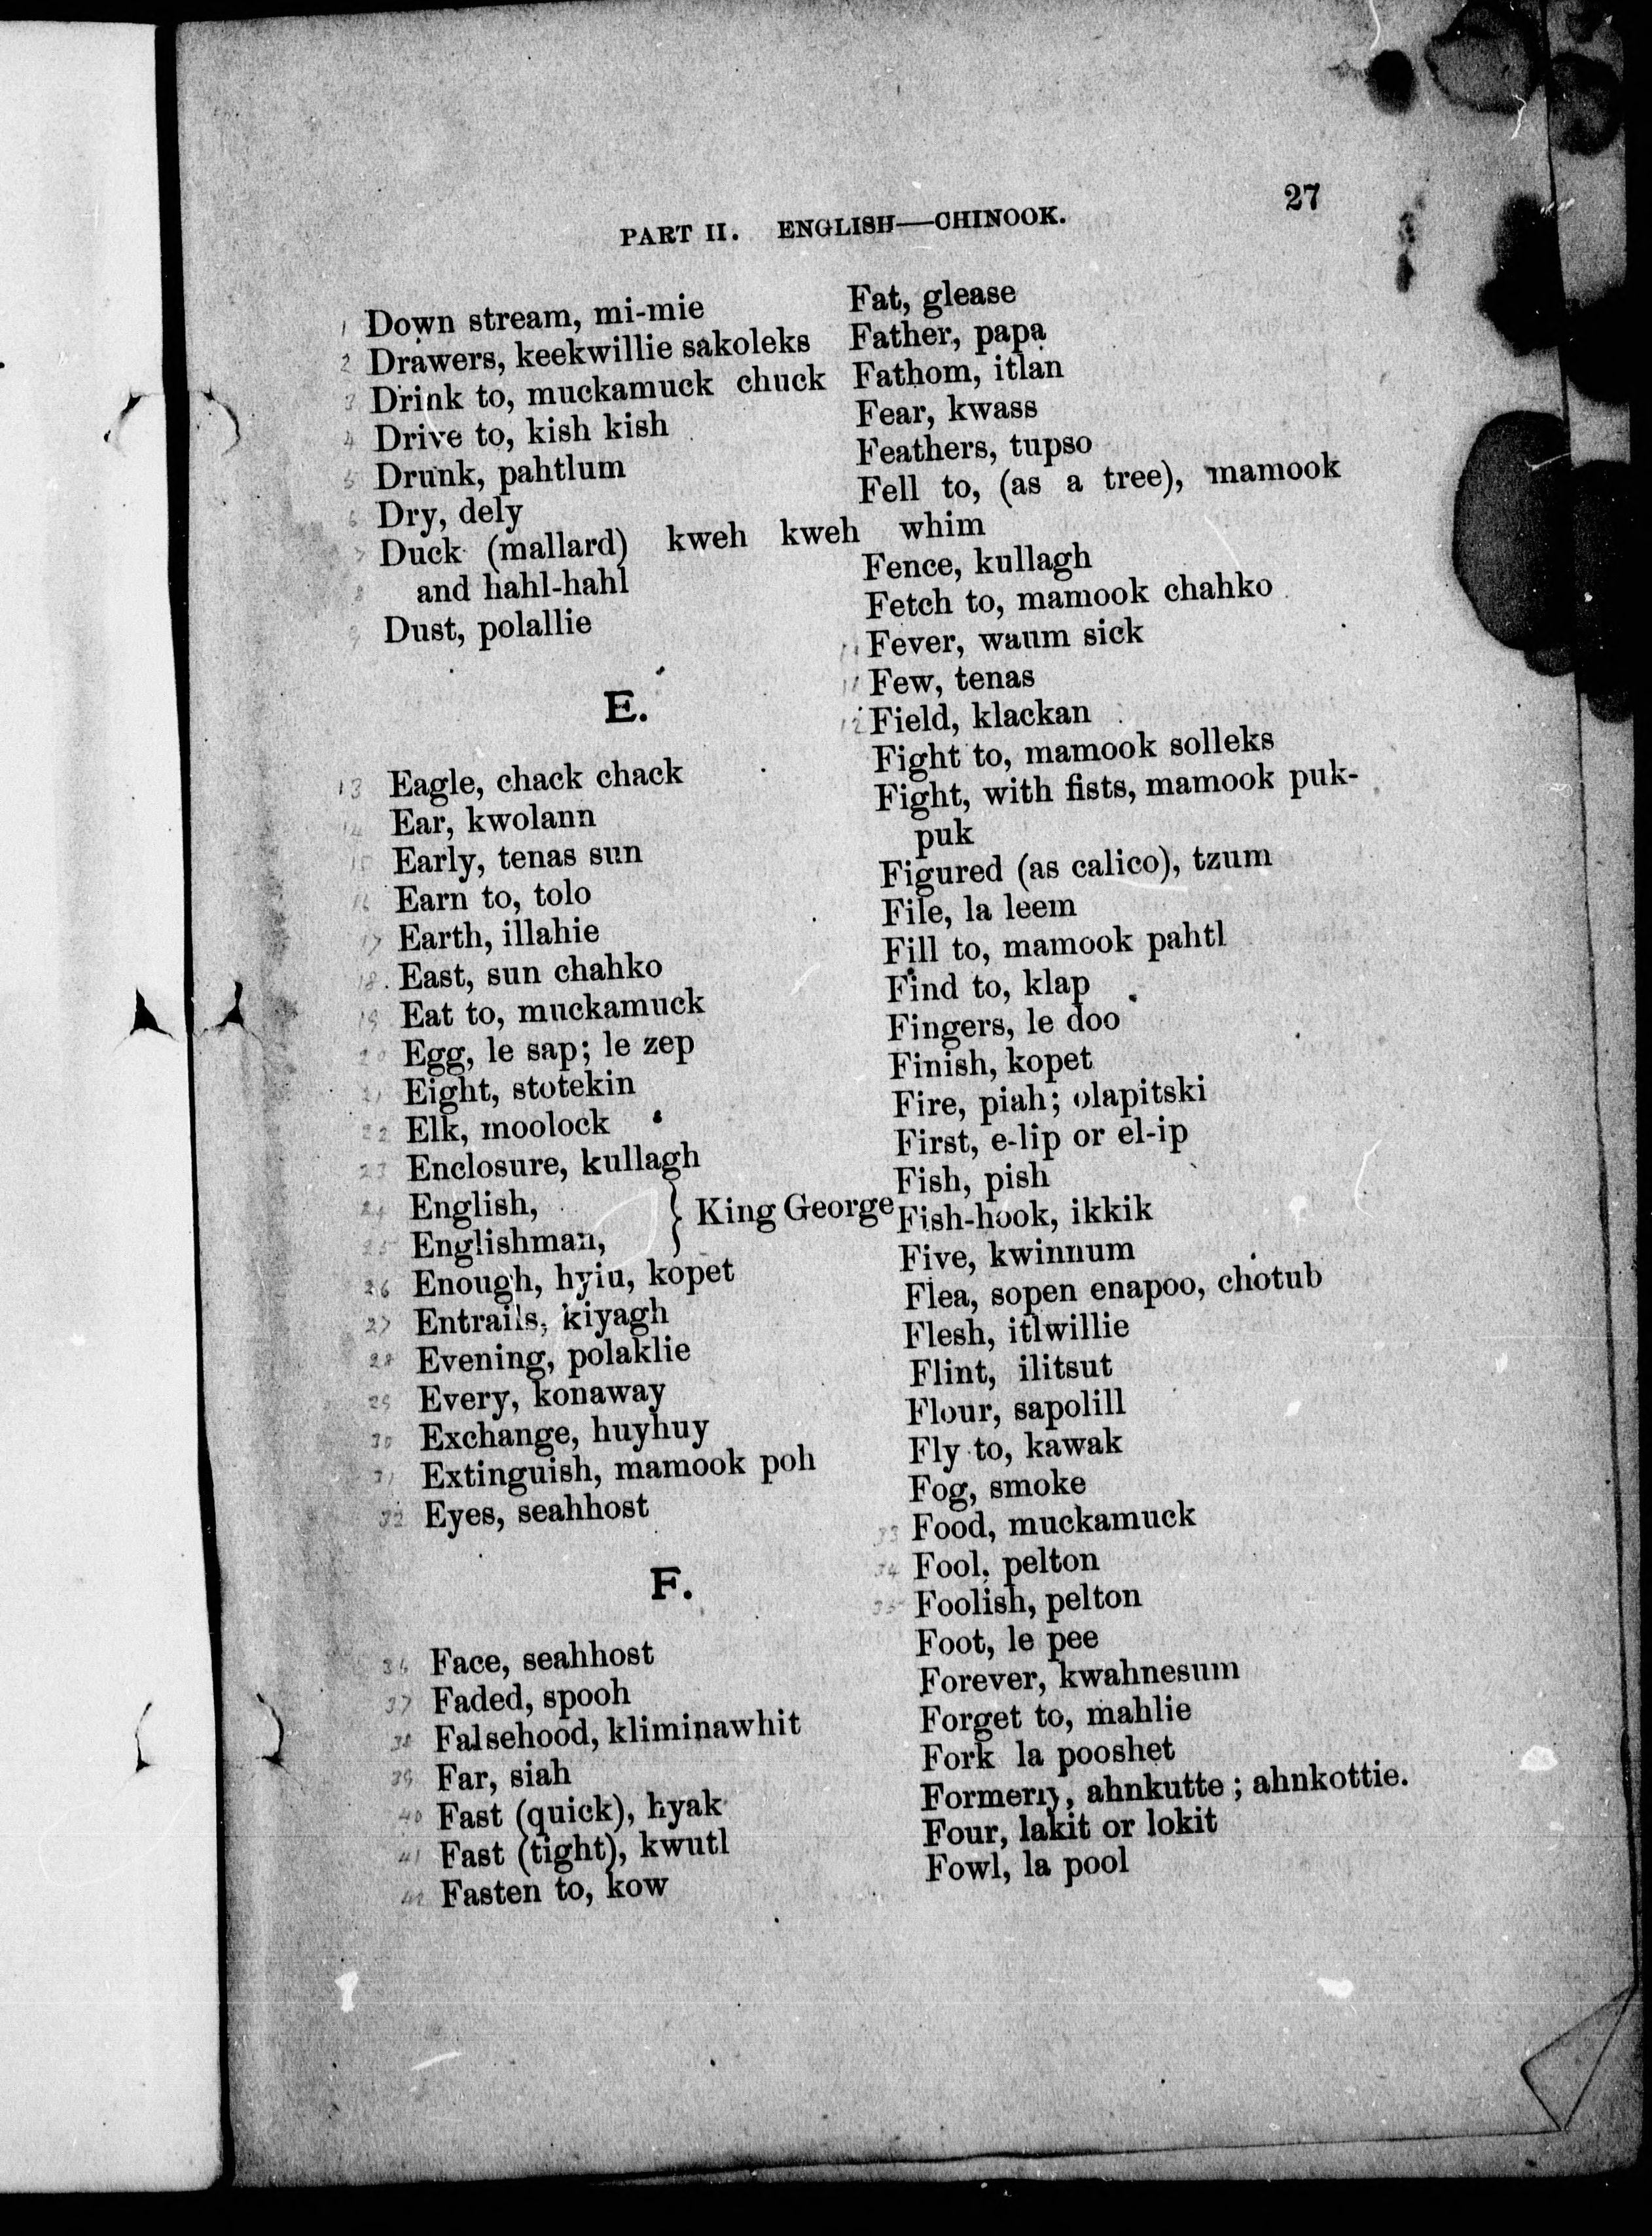 PART II. ENGLISH—CHINOOK.
27
Down stream, mi-mie
Drawers, keekwillie sakoleks
Drink to, muckamuck chuck
Drive to, kish kish
Drunk, pahtlum
Dry, dely
Duck (mallard) kweh kweh
and hahl-hahl
Dust, polallie
E.
Eagle, chack chack
Ear, kwolann
Early, tenas sun
Earn to, tolo
Earth, illahie
East, sun chahko
Eat to, muckamuck
Egg, le sap; le zep
Eight, stotekin
Elk, moolock
Enclosure, kullagh
English,
Englishman, } King George
Enough, hyiu, kopet
Entrails, kiyagh
Evening, polaklie
Every, konaway
Exchange, huyhuy
Extinguish, mamook poh
Eyes, seahhost
F.
Face, seahhost
Faded, spooh
Falsehood, kliminawhit
Far, siah
Fast (quick), hyak
Fast (tight), kwutl
Fasten to, kow
Fat, glease
Father, papa
Fathom, itlan
Fear, kwass
Feathers, tupso
Fell to, (as a tree), mamook
whim
Fence, kullagh
Fetch to, mamook chahko
Fever, waum sick
Few, tenas
Field, klackan
Fight to, mamook solleks
Fight, with fists, mamook puk-
puk
Figured (as calico), tzum
File, la leem
Fill to, mamook pahtl
Find to, klap
Fingers, le doo
Finish, kopet
Fire, piah; olapitski
First, e-lip or el-ip
Fish, pish
Fish-hook, ikkik
Five, kwinnum
Flea, sopen enapoo, chotub
Flesh, itlwillie
Flint, ilitsut
Flour, sapolill
Fly to, kawak
Fog, smoke
Food, muckamuck
Fool, pelton
Foolish, pelton
Foot, le pee
Forever, kwahnesum
Forget to, mahlie
Fork la pooshet
Formerly, ahnkutte; ahnkottie.
Four, lakit or lokit
Fowl, la pool